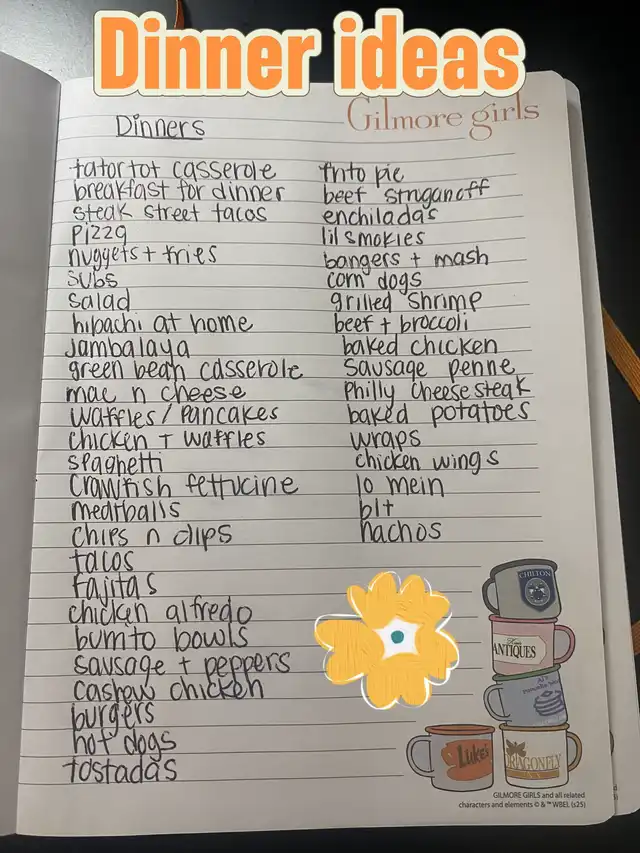 Dinner ideas
Gilmore girls
Dinners
tator tot casserole
breakfast for dinner
steak street tacos
pizza
nuggets + fries
subs
salad
hibachi at home
jambalaya
green bean casserole
mac n cheese
waffles / pancakes
chicken + waffles
spaghetti
crawfish fettucine
meatballs
chips n dips
tacos
fajitas
chicken alfredo
burrito bowls
sausage + peppers
cashew chicken
burgers
hot dogs
tostadas
frito pie
beef stroganoff
enchiladas
lil smokies
bangers + mash
corn dogs
grilled shrimp
beef + broccoli
baked chicken
sausage penne
philly cheese steak
baked potatoes
wraps
chicken wings
lo mein
blt
nachos
CHILTON
ANTIQUES
Luke's
DRAGONFLY
GILMORE GIRLS and all related
characters and elements © & ™ WBEI. (s25)